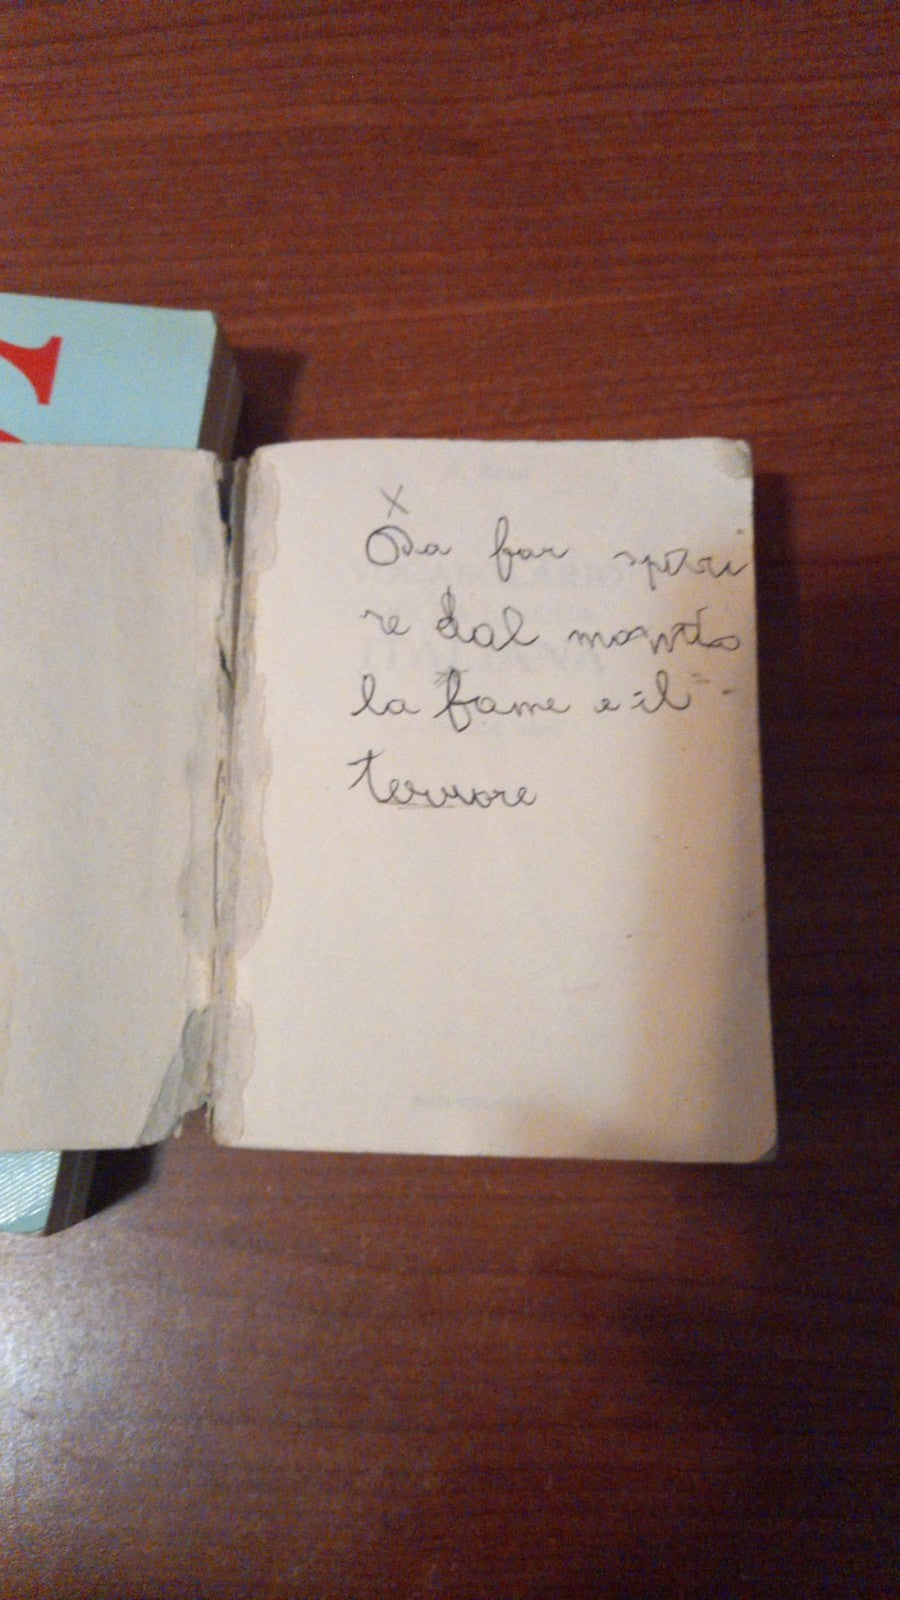 x
Da far spari
re dal mondo
la fame e il
terrore